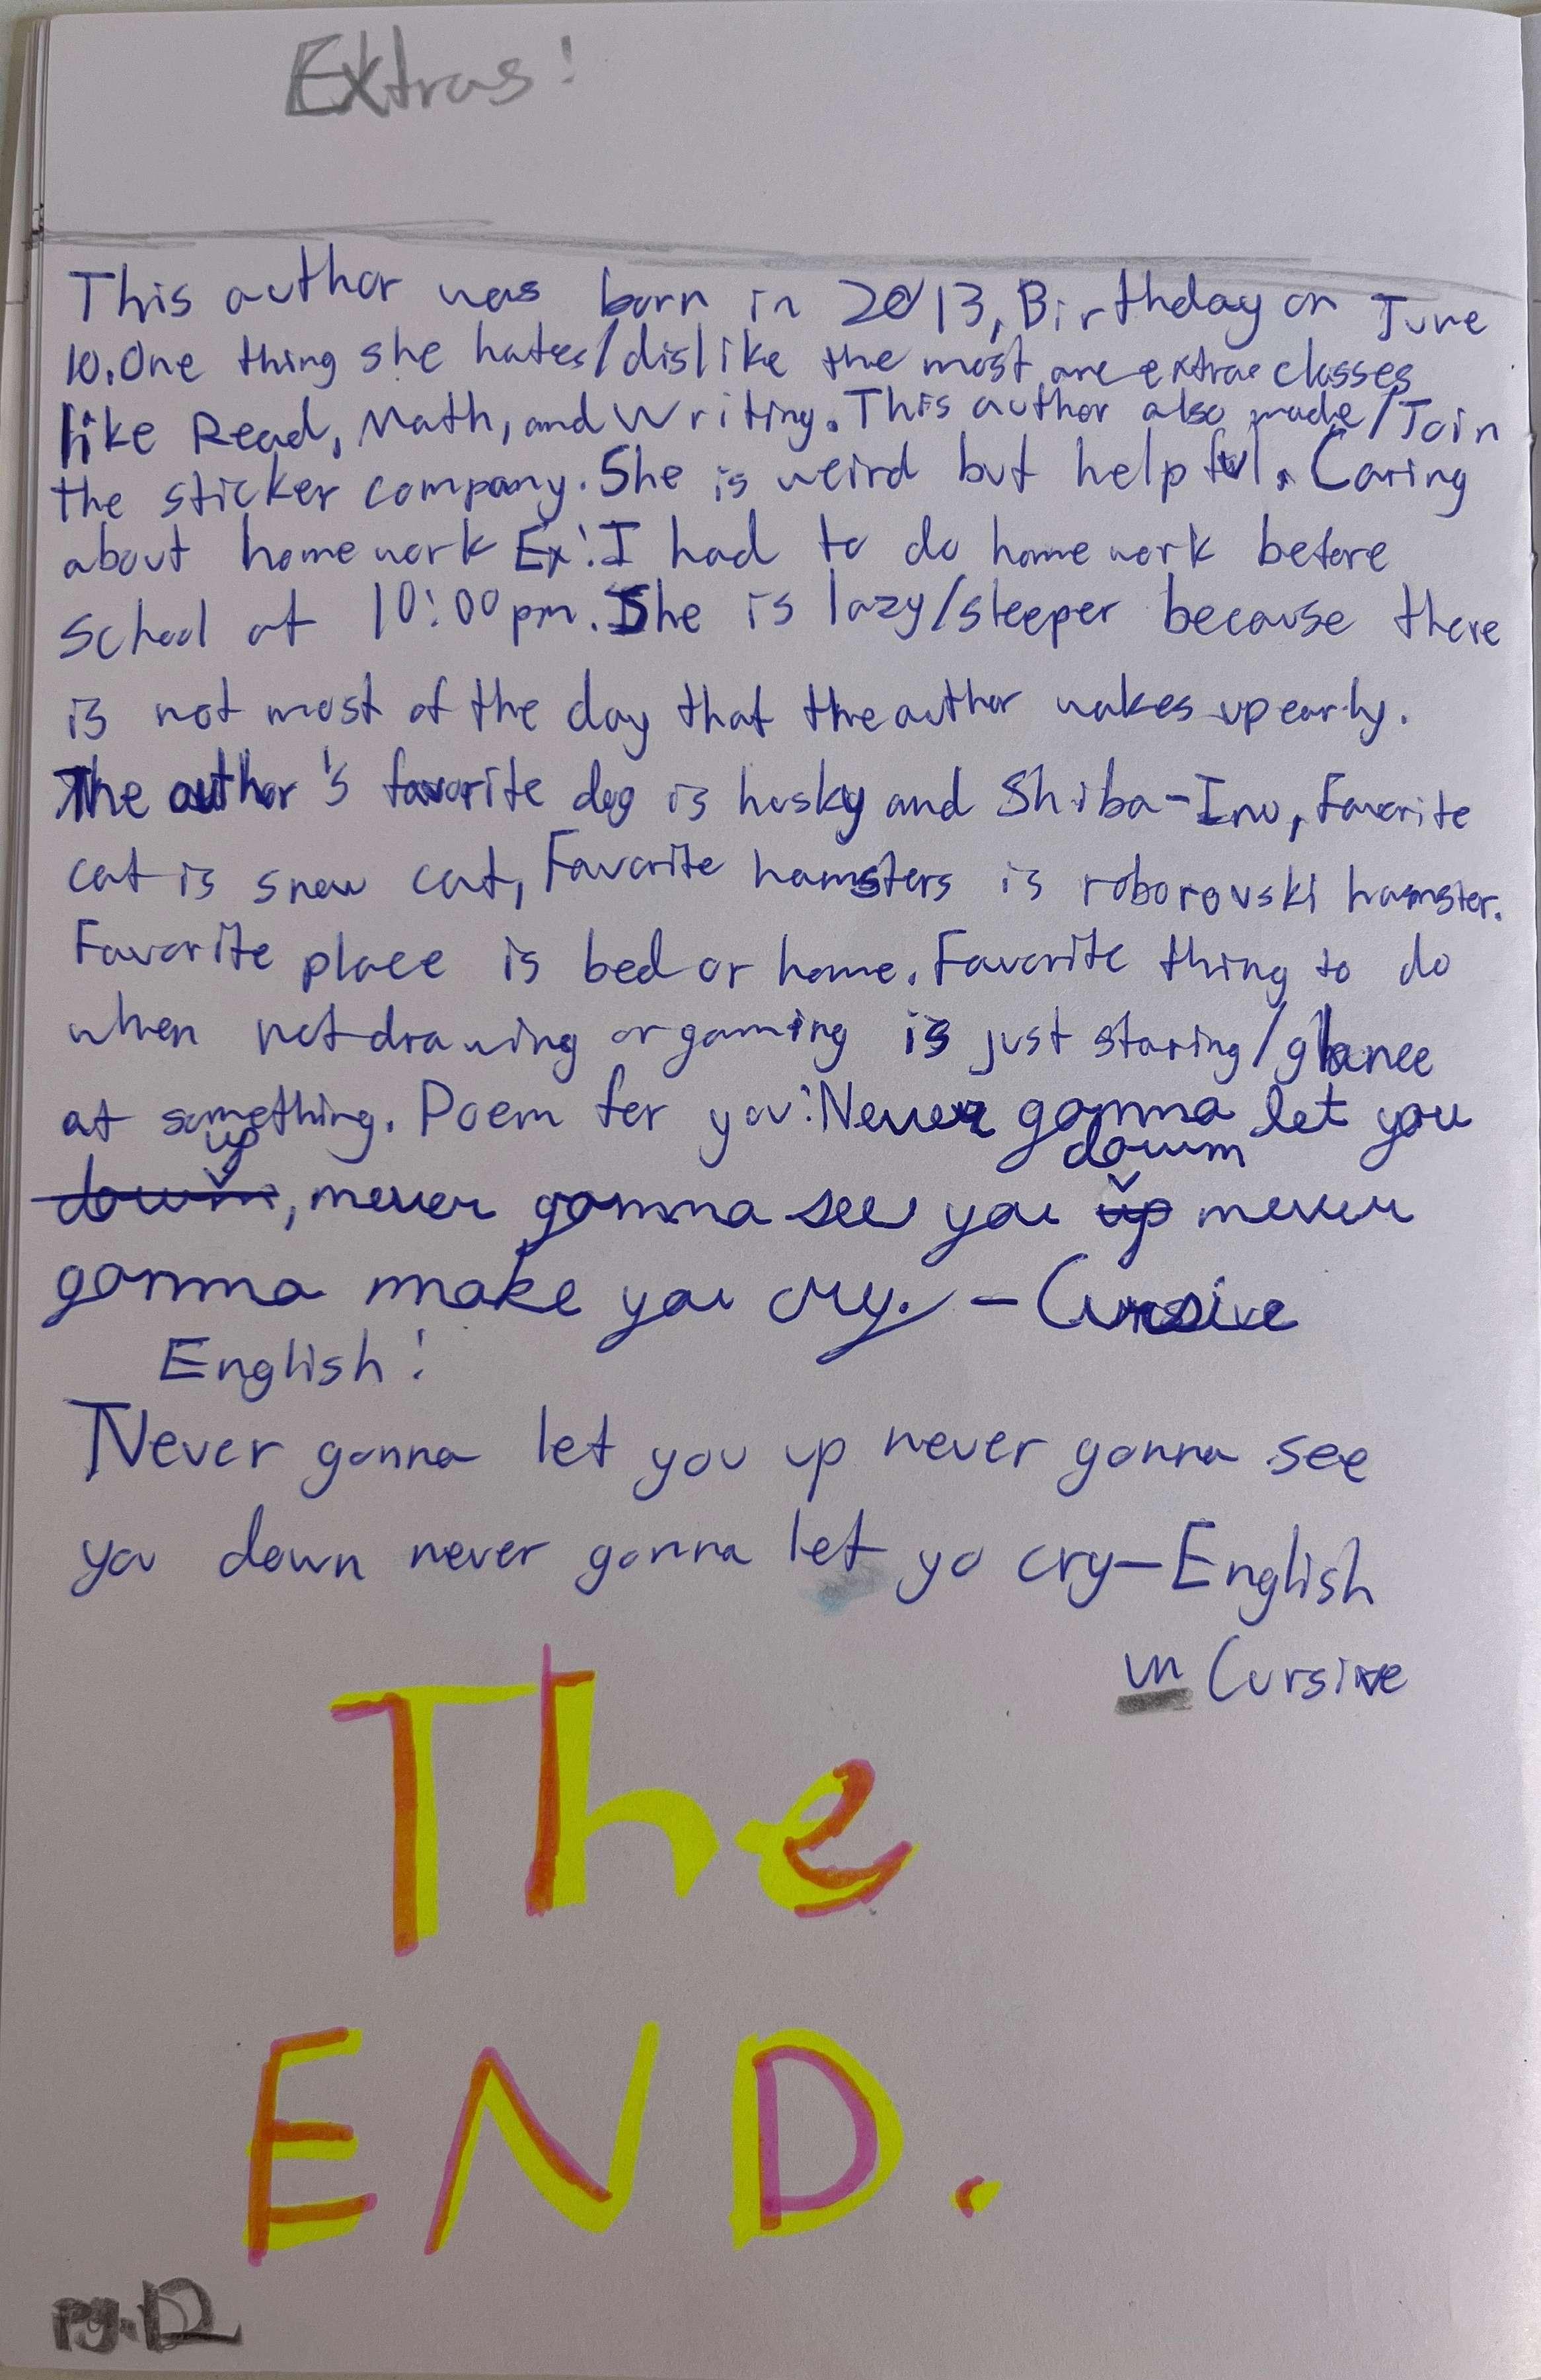 Extras!
This author was born in 2013, Birthday on June
10. One thing she hates/dislike the most are extrae classes
like Read, Math, and Writing. This author also made/Join
the sticker company. She is weird but helpful. Caring
about homework Ex: I had to do homework before
School at 10:00 pm. She is lazy/sleeper because there
is not most of the day that the author wakes up early.
The author's favorite dog is husky and Shiba-Inu, Favorite
cat is snow cat, Favorite hamsters is roborovski hamster.
Favorite place is bed or home. Favorite thing to do
when not drawing or gaming is just staring/glance
at something. Poem for you: Never gonna let you
up down
down, never gonna see you up never
gonna make you cry. - Cursive
English!
Never gonna let you up never gonna see
you down never gonna let yo cry - English
un Cursive
The
END.
pg.12